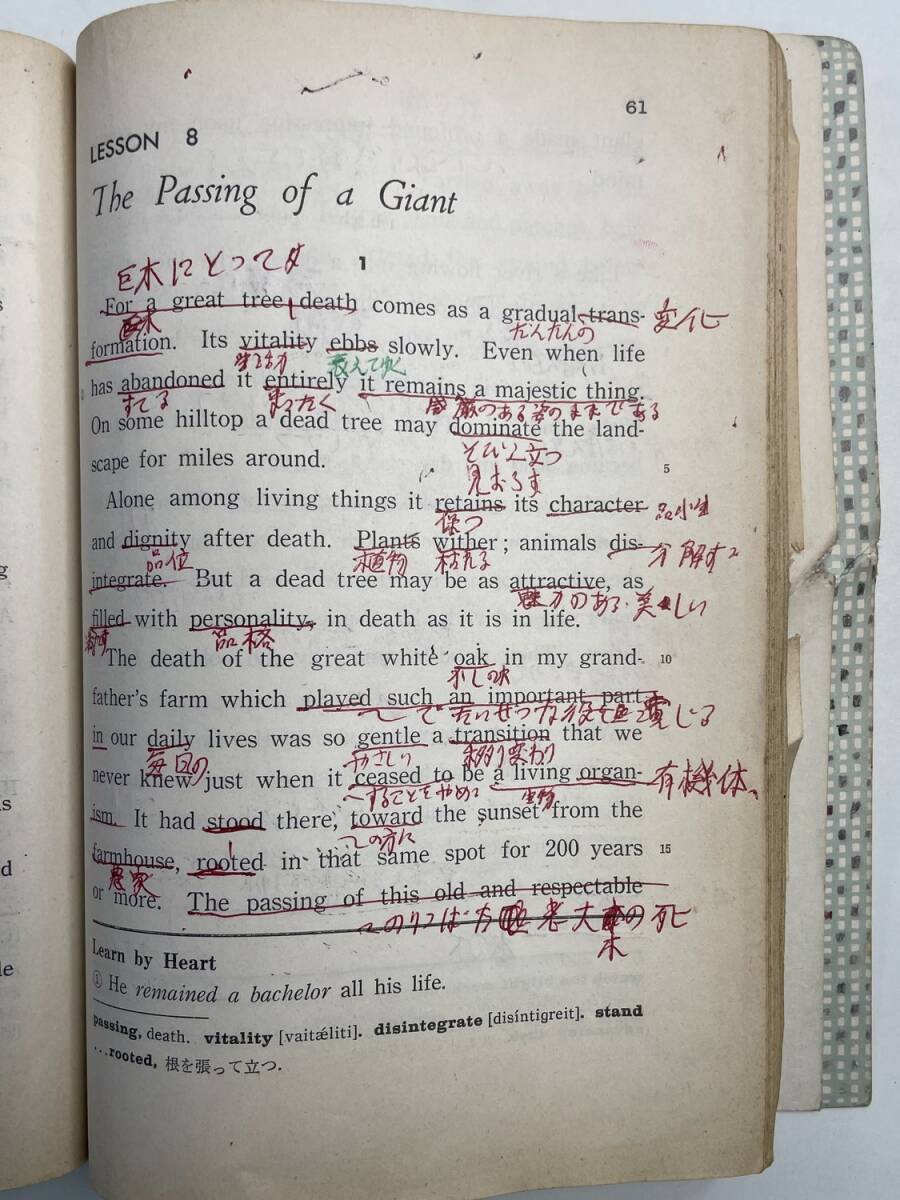 61
LESSON 8
The Passing of a Giant
巨木にとっては
1
For a great tree death comes as a gradual trans-
変化
formation. Its vitality ebbs slowly. Even when life
だんだんの
生活力
衰えてゆく
has abandoned it entirely it remains a majestic thing.
すてる
まったく
威厳のある姿のままである
On some hilltop a dead tree may dominate the land-
そびえ立つ
scape for miles around.
5
見おろす
Alone among living things it retains its character
保つ
and dignity after death. Plants wither; animals dis-
品位
植物
枯れる
分解する
integrate. But a dead tree may be as attractive, as
魅力のある・美しい
filled with personality, in death as it is in life.
品格
The death of the great white oak in my grand-
10
father's farm which played such an important part
in our daily lives was so gentle a transition that we
毎日の
やさしい
移り変わり
never knew just when it ceased to be a living organ-
有機体、
〜することをやめる
生物
ism. It had stood there, toward the sunset from the
〜の方に
farmhouse, rooted in that same spot for 200 years
15
農家
or more. The passing of this old and respectable
Learn by Heart
① He remained a bachelor all his life.
passing, death. vitality [vaitǽliti]. disintegrate [disíntigreit]. stand
...rooted, 根を張って立つ.